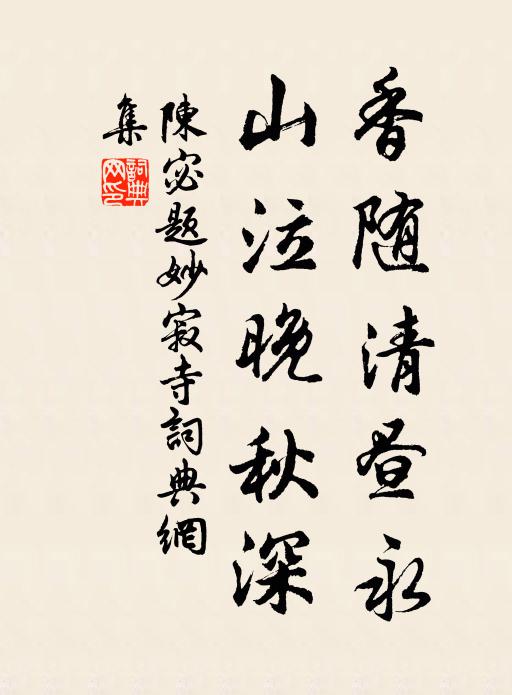 香随清昼永
山泣晚秋深
陳宓題妙寂寺詞典網
集
詞典
网印